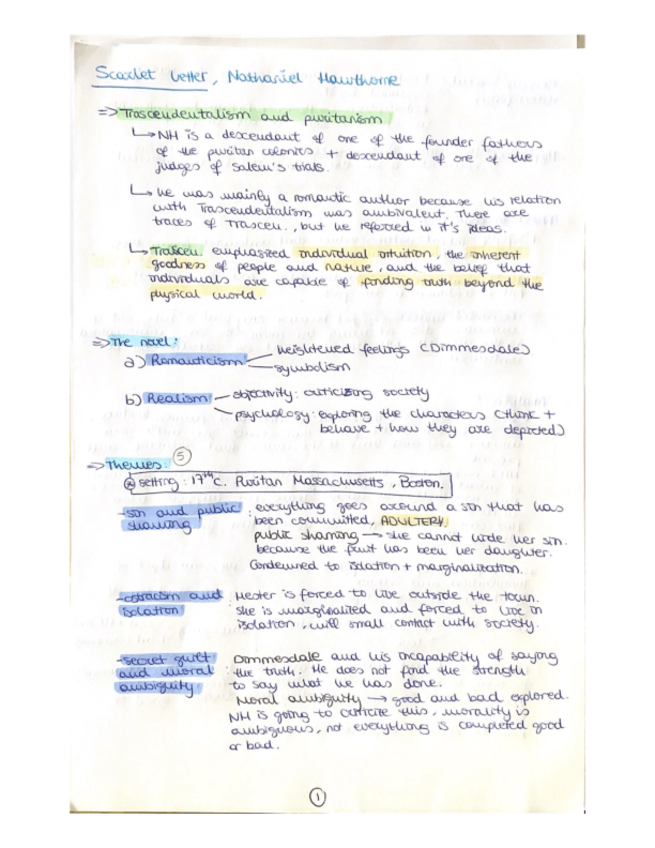 Scarlet Letter, Nathaniel Hawthorne
=> Trascendentalism and puritanism
↳ NH is a descendant of one of the founder fathers
of the puritan colonies + descendant of one of the
judges of Salem's trials.
↳ he was mainly a romantic author because his relation
with Trascendentalism was ambivalent. There are
traces of Trascen., but he refocred in it's ideas.
↳ Trascen. emphasized individual intuition, the inherent
goodness of people and nature, and the belief that
individuals are capable of finding truth beyond the
physical world.
=> The novel:
a) Romanticism — heightened feelings (Dimmesdale)
— symbolism
b) Realism — objectivity: criticizing society
— psychology: exploring the characters (think +
behave + how they are depicted)
=> Themes: 5
* setting: 17th c. Puritan Massachusetts, Boston.
- sin and public shaming : everything goes around a sin that has
been committed, ADULTERY.
public shaming → she cannot hide her sin
because the fruit has been her daughter.
Condemned to isolation + marginalization.
- ostracism and isolation : Hester is forced to live outside the town.
She is marginalized and forced to live in
isolation, will small contact with society.
- secret guilt and moral ambiguity : Dimmesdale and his incapability of saying
the truth. He does not find the strength
to say what he has done.
Moral ambiguity → good and bad explored.
NH is going to criticise this, morality is
ambiguous, not everything is completed good
or bad.
1